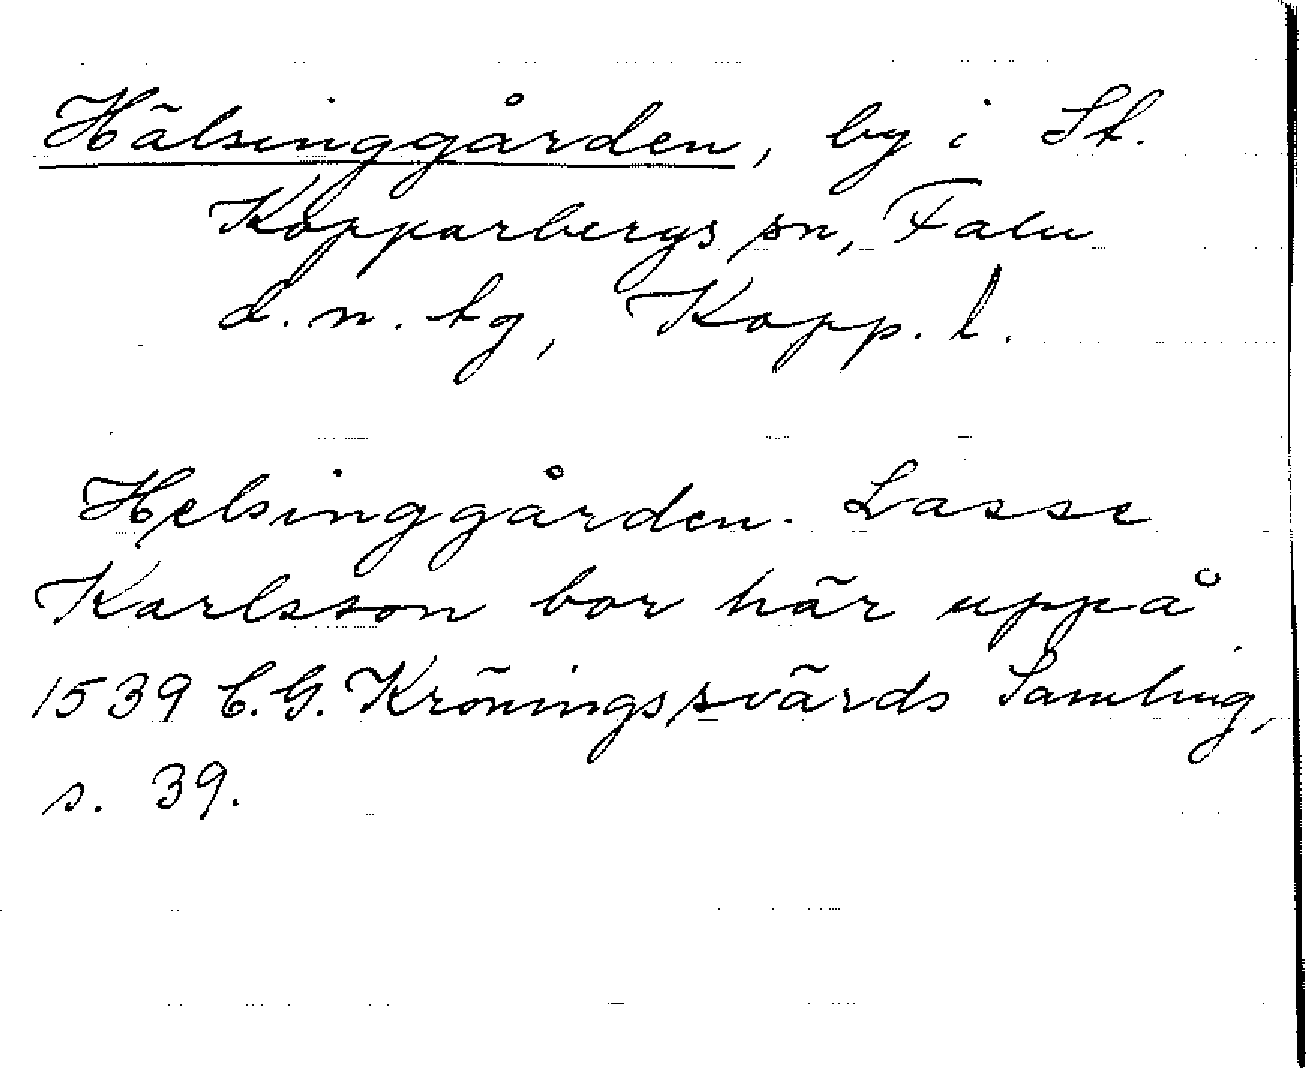 Hälsinggården, by i St.
Kopparbergs sn, Falu
d. n. tg, Kopp. l.
Helsinggården. Lasse
Karlsson bor här uppå
1539 C.G. Kröningssvärds Samling,
s. 39.